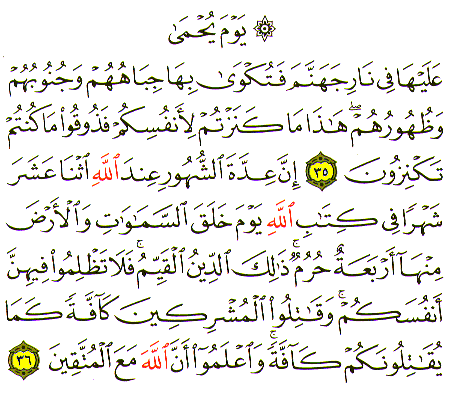 ۞ يَوْمَ يُحْمَىٰ
عَلَيْهَا فِي نَارِ جَهَنَّمَ فَتُكْوَىٰ بِهَا جِبَاهُهُمْ وَجُنُوبُهُمْ
وَظُهُورُهُمْ ۖ هَٰذَا مَا كَنَزْتُمْ لِأَنفُسِكُمْ فَذُوقُوا۟ مَا كُنتُمْ
تَكْنِزُونَ ٣٥ إِنَّ عِدَّةَ ٱلشُّهُورِ عِندَ ٱللَّهِ ٱثْنَا عَشَرَ
شَهْرًا فِي كِتَٰبِ ٱللَّهِ يَوْمَ خَلَقَ ٱلسَّمَٰوَٰتِ وَٱلْأَرْضَ
مِنْهَآ أَرْبَعَةٌ حُرُمٌ ۚ ذَٰلِكَ ٱلدِّينُ ٱلْقَيِّمُ ۚ فَلَا تَظْلِمُوا۟ فِيهِنَّ
أَنفُسَكُمْ ۚ وَقَٰتِلُوا۟ ٱلْمُشْرِكِينَ كَآفَّةً كَمَا
يُقَٰتِلُونَكُمْ كَآفَّةً ۚ وَٱعْلَمُوٓا۟ أَنَّ ٱللَّهَ مَعَ ٱلْمُتَّقِينَ ٣٦